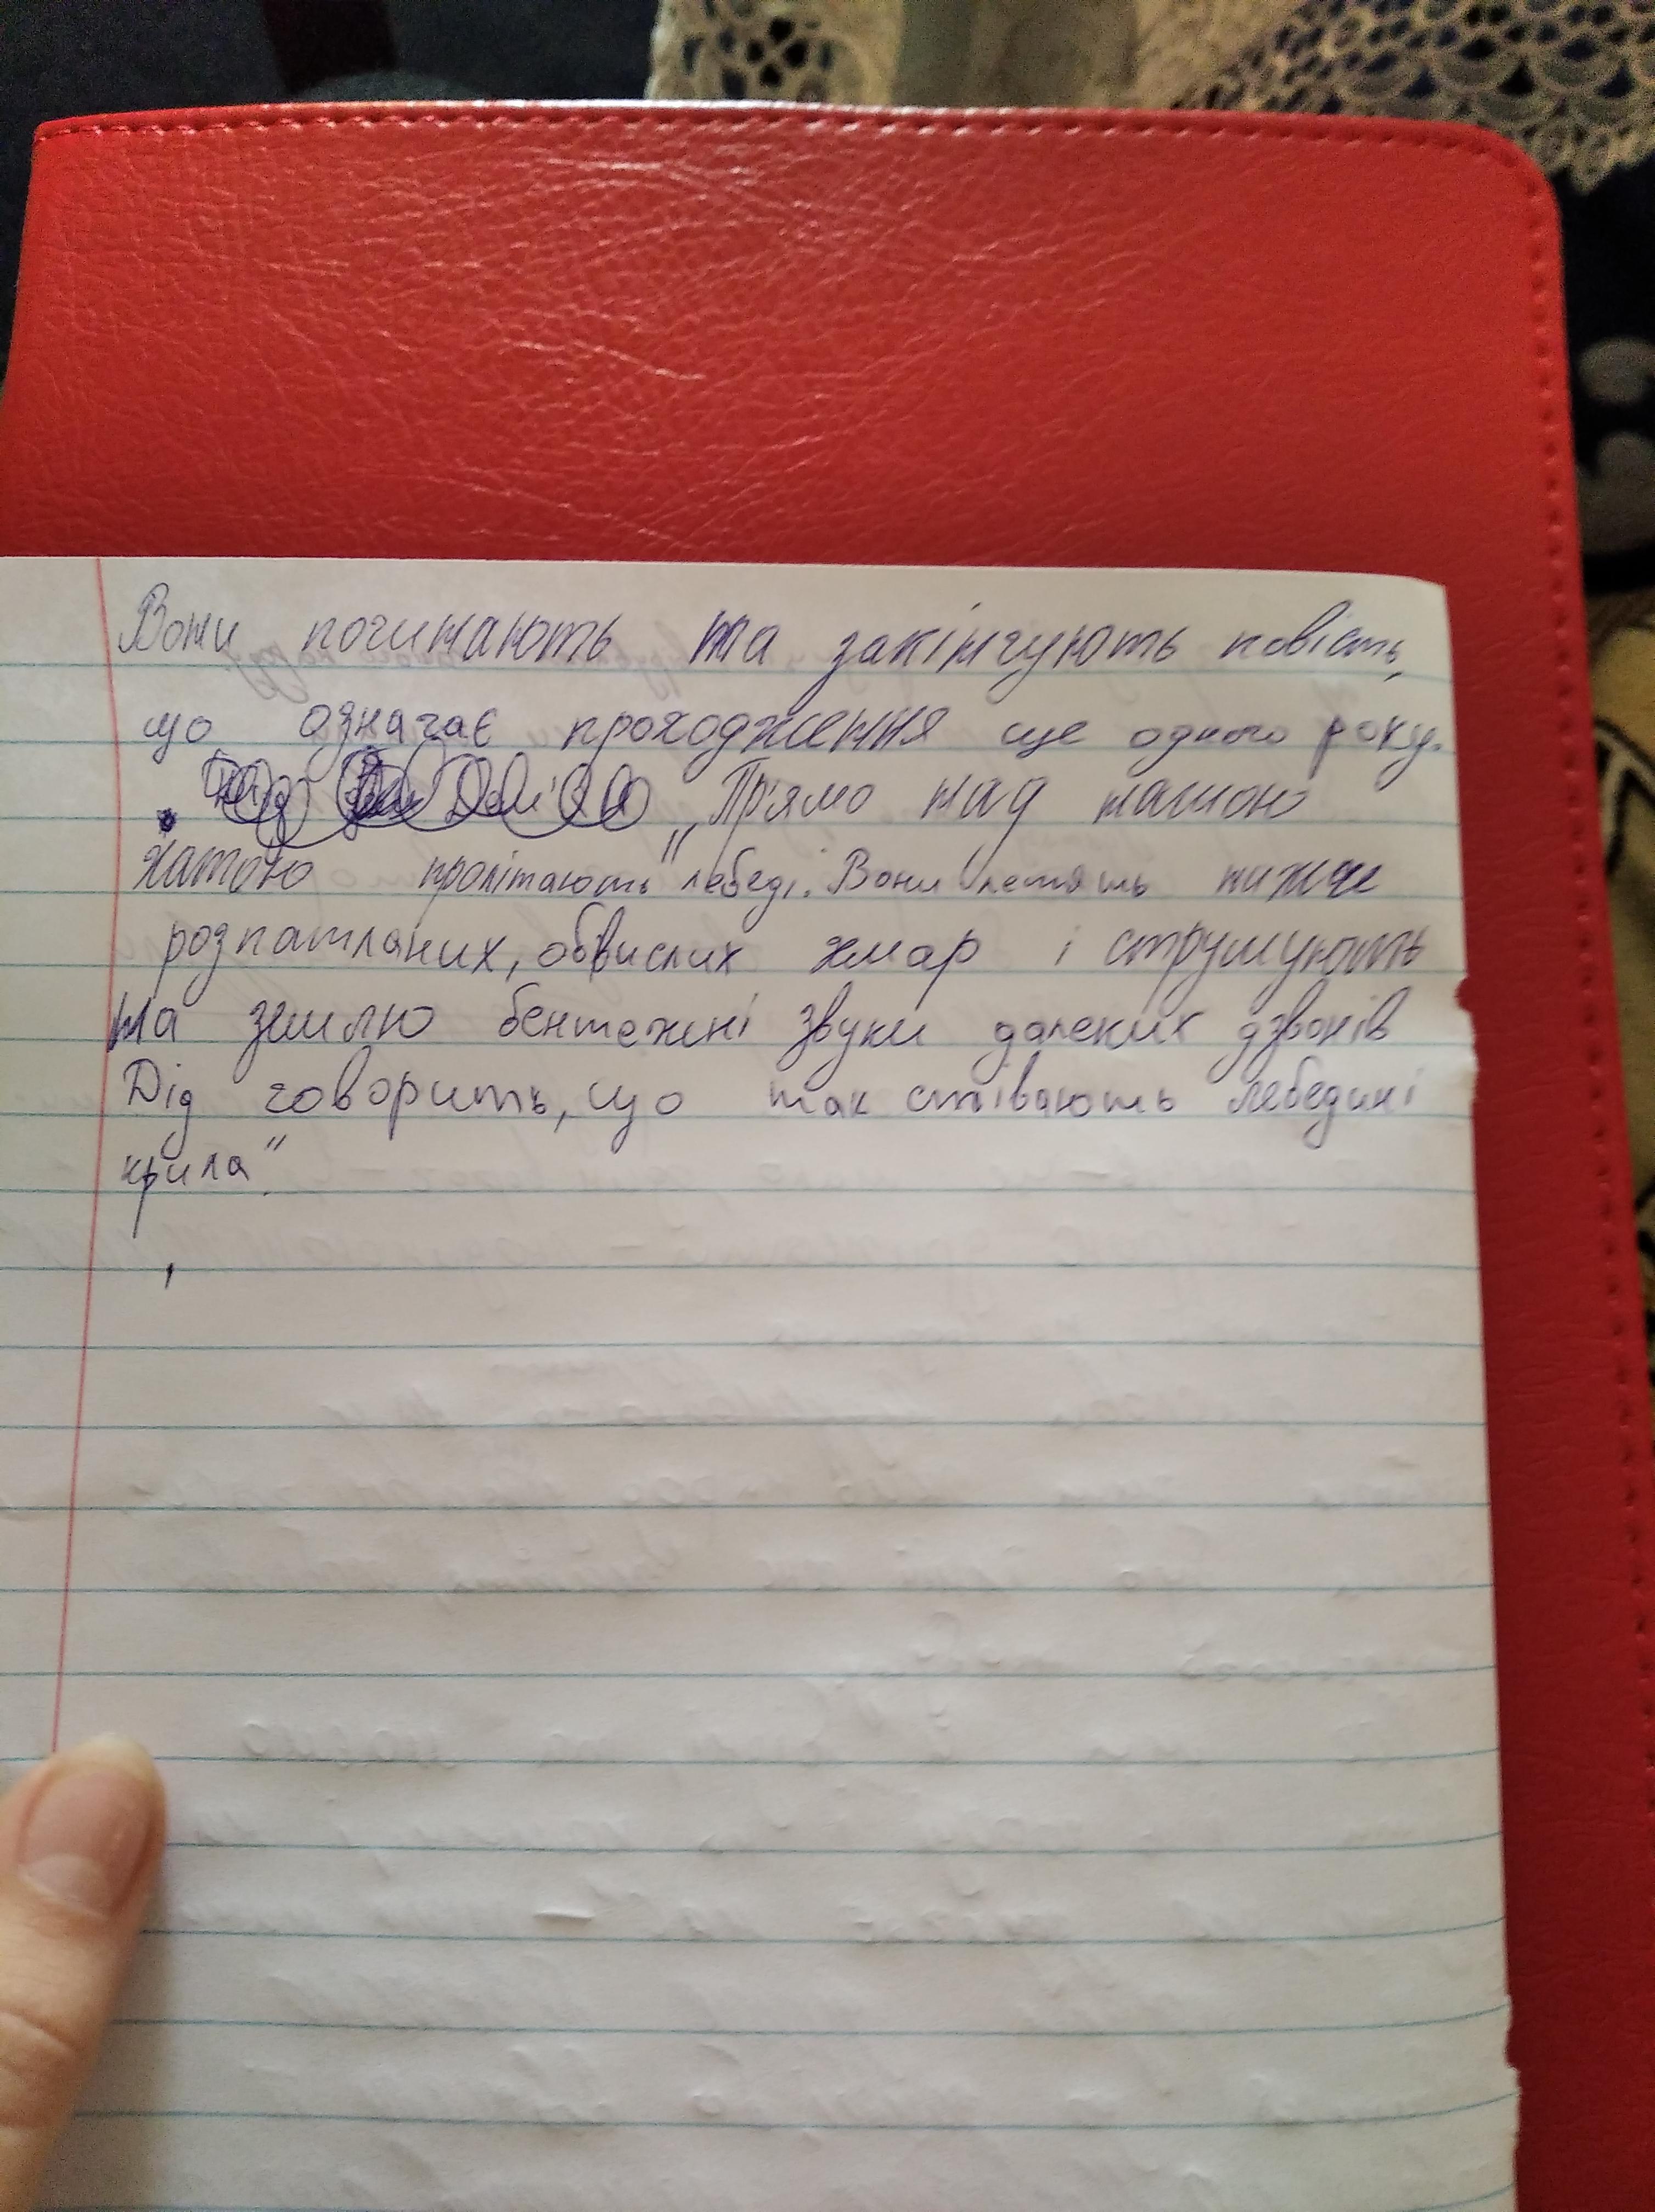 Вони починають та закінчують повість,
що означає проходження ще одного року.
„Прямо над нашою
хатою пролітають лебеді. Вони летять нижче
розпатланих, обвислих хмар і струшують
на землю бентежні звуки далеких дзвонів
Дід говорить, що так співають лебедині
крила".